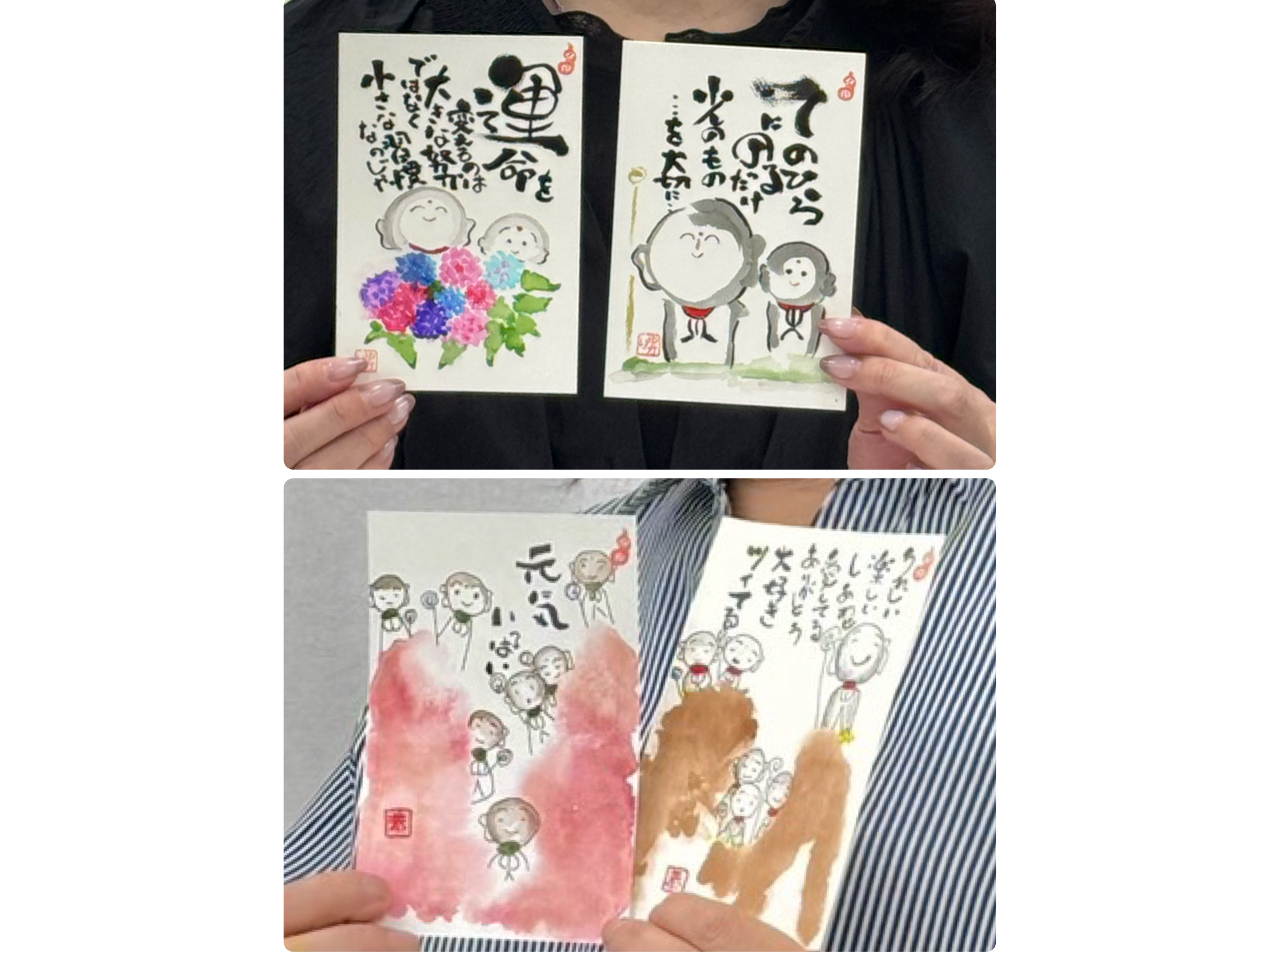 運命を
変えるのは
大きな努力
ではなく
小さな習慣
なのじゃ
てのひら
に
のるだけ
少しのもの
…を大切に…
元気
いっぱい
うれしい
楽しい
しあわせ
愛してる
ありがとう
大好き
ツイてる